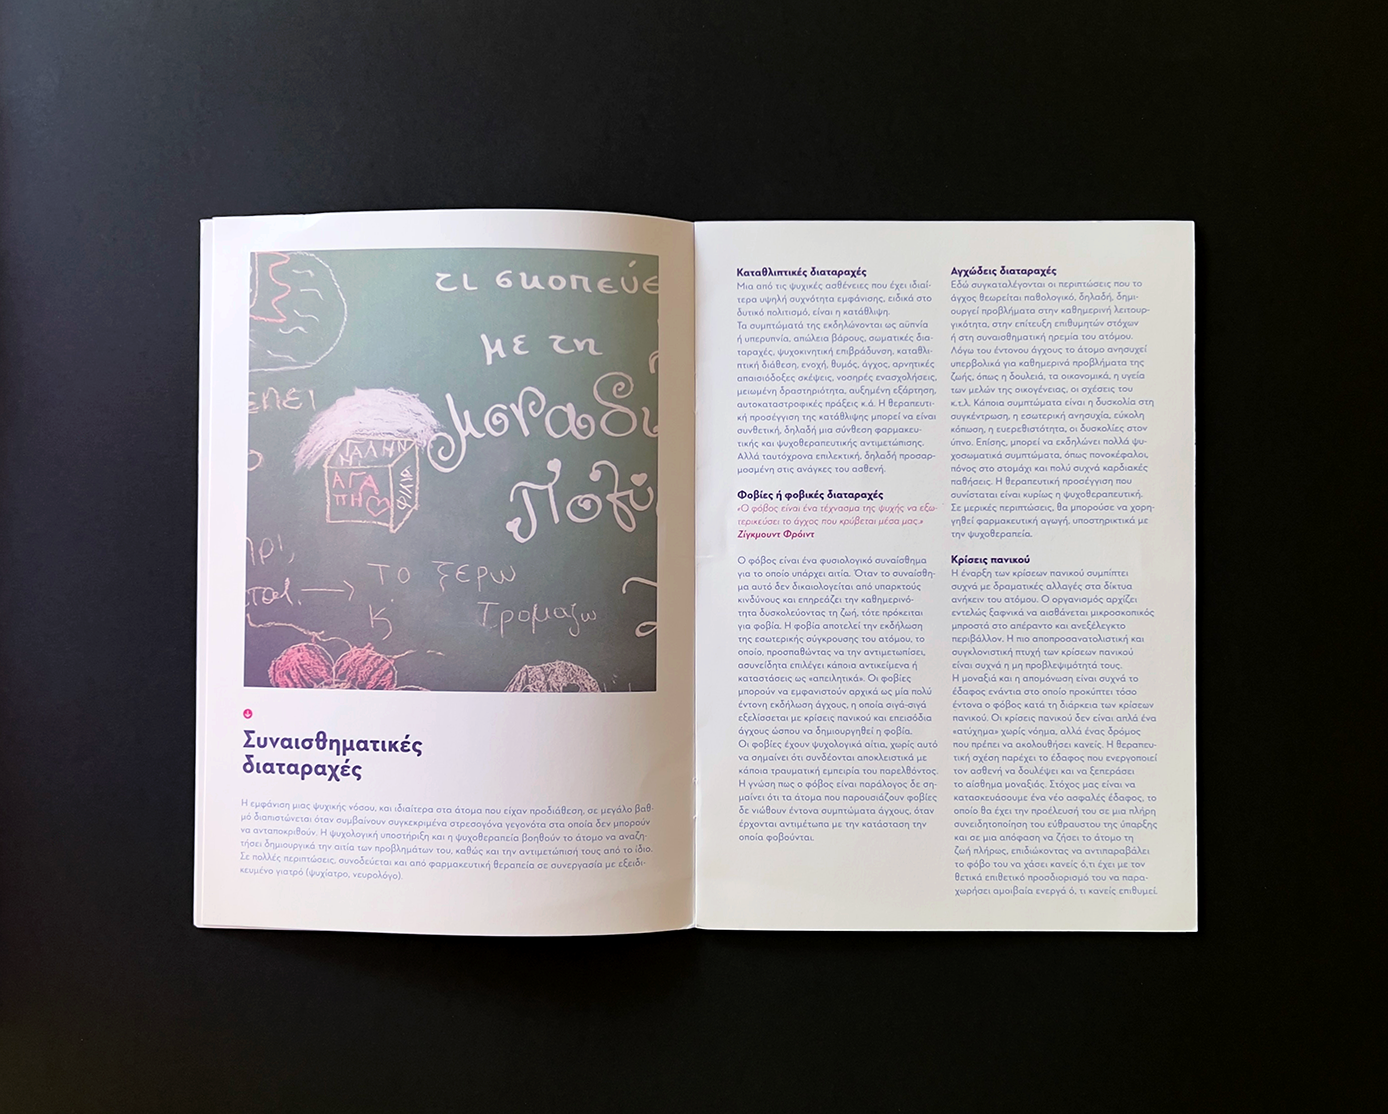 τι σκοπεύε
με τη
μοναδι
Ποζι
ΕΠΕΙ
ΓΑΛΗΝ
Η
ΑΓΑ
ΠΗ
ΦΙΛΙΑ
ΠΡΙ,
το ξερω
κ
τρομαζω
Συναισθηματικές
διαταραχές
Η εμφάνιση μιας ψυχικής νόσου, και ιδιαίτερα στα άτομα που είχαν προδιάθεση, σε μεγάλο βαθ-
μό διαπιστώνεται όταν συμβαίνουν συγκεκριμένα στρεσογόνα γεγονότα στα οποία δεν μπορούν
να ανταποκριθούν. Η ψυχολογική υποστήριξη και η ψυχοθεραπεία βοηθούν το άτομο να αναζη-
τήσει δημιουργικά την αιτία των προβλημάτων του, καθώς και την αντιμετώπισή τους από το ίδιο.
Σε πολλές περιπτώσεις, συνοδεύεται και από φαρμακευτική θεραπεία σε συνεργασία με εξειδι-
κευμένο γιατρό (ψυχίατρο, νευρολόγο).
Καταθλιπτικές διαταραχές
Μια από τις ψυχικές ασθένειες που έχει ιδιαί-
τερα υψηλή συχνότητα εμφάνισης, ειδικά στο
δυτικό πολιτισμό, είναι η κατάθλιψη.
Τα συμπτώματά της εκδηλώνονται ως αϋπνία
ή υπερυπνία, απώλεια βάρους, σωματικές δια-
ταραχές, ψυχοκινητική επιβράδυνση, καταθλι-
πτική διάθεση, ενοχή, θυμός, άγχος, αρνητικές
απαισιόδοξες σκέψεις, νοσηρές ενασχολήσεις,
μειωμένη δραστηριότητα, αυξημένη εξάρτηση,
αυτοκαταστροφικές πράξεις κ.ά. Η θεραπευτι-
κή προσέγγιση της κατάθλιψης μπορεί να είναι
συνθετική, δηλαδή μια σύνθεση φαρμακευ-
τικής και ψυχοθεραπευτικής αντιμετώπισης.
Αλλά ταυτόχρονα επιλεκτική, δηλαδή προσαρ-
μοσμένη στις ανάγκες του ασθενή.
Φοβίες ή φοβικές διαταραχές
«Ο φόβος είναι ένα τέχνασμα της ψυχής να εξω-
τερικεύσει το άγχος που κρύβεται μέσα μας.»
Ζίγκμουντ Φρόιντ
Ο φόβος είναι ένα φυσιολογικό συναίσθημα
για το οποίο υπάρχει αιτία. Όταν το συναίσθη-
μα αυτό δεν δικαιολογείται από υπαρκτούς
κινδύνους και επηρεάζει την καθημερινό-
τητα δυσκολεύοντας τη ζωή, τότε πρόκειται
για φοβία. Η φοβία αποτελεί την εκδήλωση
της εσωτερικής σύγκρουσης του ατόμου, το
οποίο, προσπαθώντας να την αντιμετωπίσει,
ασυνείδητα επιλέγει κάποια αντικείμενα ή
καταστάσεις ως «απειλητικά». Οι φοβίες
μπορούν να εμφανιστούν αρχικά ως μία πολύ
έντονη εκδήλωση άγχους, η οποία σιγά-σιγά
εξελίσσεται με κρίσεις πανικού και επεισόδια
άγχους ώσπου να δημιουργηθεί η φοβία.
Οι φοβίες έχουν ψυχολογικά αίτια, χωρίς αυτό
να σημαίνει ότι συνδέονται αποκλειστικά με
κάποια τραυματική εμπειρία του παρελθόντος.
Η γνώση πως ο φόβος είναι παράλογος δε ση-
μαίνει ότι τα άτομα που παρουσιάζουν φοβίες
δε νιώθουν έντονα συμπτώματα άγχους, όταν
έρχονται αντιμέτωπα με την κατάσταση την
οποία φοβούνται.
Αγχώδεις διαταραχές
Εδώ συγκαταλέγονται οι περιπτώσεις που το
άγχος θεωρείται παθολογικό, δηλαδή, δημι-
ουργεί προβλήματα στην καθημερινή λειτουρ-
γικότητα, στην επίτευξη επιθυμητών στόχων
ή στη συναισθηματική ηρεμία του ατόμου.
Λόγω του έντονου άγχους το άτομο ανησυχεί
υπερβολικά για καθημερινά προβλήματα της
ζωής, όπως η δουλειά, τα οικονομικά, η υγεία
των μελών της οικογένειας, οι σχέσεις του
κ.τ.λ. Κάποια συμπτώματα είναι η δυσκολία στη
συγκέντρωση, η εσωτερική ανησυχία, εύκολη
κόπωση, η ευερεθιστότητα, οι δυσκολίες στον
ύπνο. Επίσης, μπορεί να εκδηλώνει πολλά ψυ-
χοσωματικά συμπτώματα, όπως πονοκέφαλοι,
πόνος στο στομάχι και πολύ συχνά καρδιακές
παθήσεις. Η θεραπευτική προσέγγιση που
συνίσταται είναι κυρίως η ψυχοθεραπευτική.
Σε μερικές περιπτώσεις, θα μπορούσε να χορη-
γηθεί φαρμακευτική αγωγή, υποστηρικτικά με
την ψυχοθεραπεία.
Κρίσεις πανικού
Η έναρξη των κρίσεων πανικού συμπίπτει
συχνά με δραματικές αλλαγές στα δίκτυα
ανήκειν του ατόμου. Ο οργανισμός αρχίζει
εντελώς ξαφνικά να αισθάνεται μικροσκοπικός
μπροστά στο απέραντο και ανεξέλεγκτο
περιβάλλον. Η πιο αποπροσανατολιστική και
συγκλονιστική πτυχή των κρίσεων πανικού
είναι συχνά η μη προβλεψιμότητά τους.
Η μοναξιά και η απομόνωση είναι συχνά το
έδαφος ενάντια στο οποίο προκύπτει τόσο
έντονα ο φόβος κατά τη διάρκεια των κρίσεων
πανικού. Οι κρίσεις πανικού δεν είναι απλά ένα
«ατύχημα» χωρίς νόημα, αλλά ένας δρόμος
που πρέπει να ακολουθήσει κανείς. Η θεραπευ-
τική σχέση παρέχει το έδαφος που ενεργοποιεί
τον ασθενή να δουλέψει και να ξεπεράσει
το αίσθημα μοναξιάς. Στόχος μας είναι να
κατασκευάσουμε ένα νέο ασφαλές έδαφος, το
οποίο θα έχει την προέλευσή του σε μια πλήρη
συνειδητοποίηση του εύθραυστου της ύπαρξης
και σε μια απόφαση να ζήσει το άτομο τη
ζωή πλήρως, επιδιώκοντας να αντιπαραβάλει
το φόβο του να χάσει κανείς ό,τι έχει με τον
θετικά επιθετικό προσδιορισμό του να παρα-
χωρήσει αμοιβαία ενεργά ό, τι κανείς επιθυμεί.